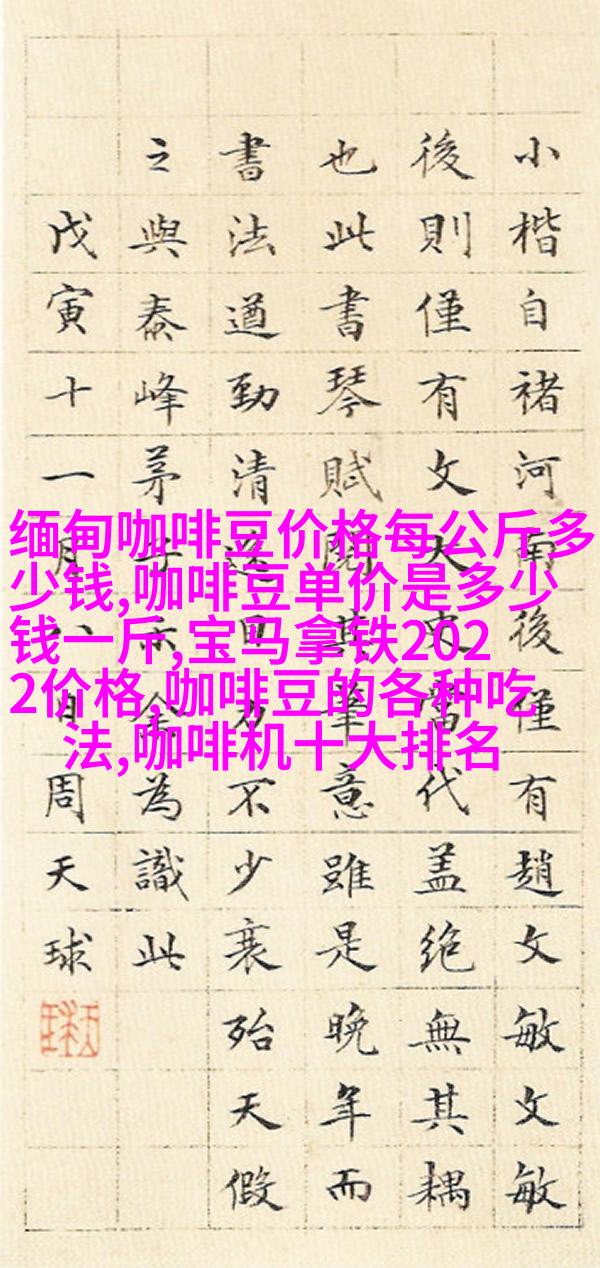 小楷自褚河南後僅有趙文敏文敏
後則僅有文太史當代盖絶無其耦
也此書琴賦閱其筆意雖是晚年而
書法遒勁清逸目力不少衰殆天假
之與泰峰茅子示余為識此
戊寅十一月八日周天球
缅甸咖啡豆价格每公斤多
少钱,咖啡豆单价是多少
钱一斤,宝马拿铁202
2价格,咖啡豆的各种吃
法,咖啡机十大排名